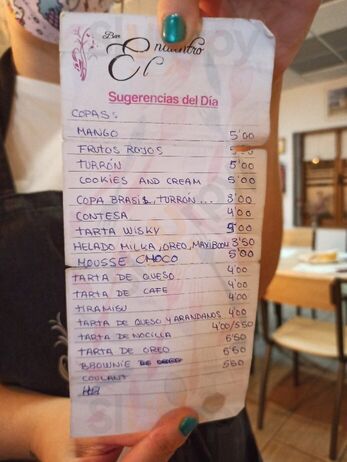 Bar
El Encuentro
Sugerencias del Día
COPAS:
MANGO 5'00
FRUTOS ROJOS 5'00
TURRÓN 5'00
COOKIES AND CREAM 5'00
COPA BRASIL, TURRON... 3'00
CONTESA 4'00
TARTA WISKY 5'00
HELADO MILKA, OREO, MAXIBOON 3'50
MOUSSE CHOCO 5'00
TARTA DE QUESO 4'00
TARTA DE CAFE 4'00
TIRAMISU 4'00
TARTA DE QUESO Y ARANDANOS 4'00
TARTA DE NOCILLA 4'00/5'50
TARTA DE OREO 5'50
BROWNIE 5'50
COULANT 5'50